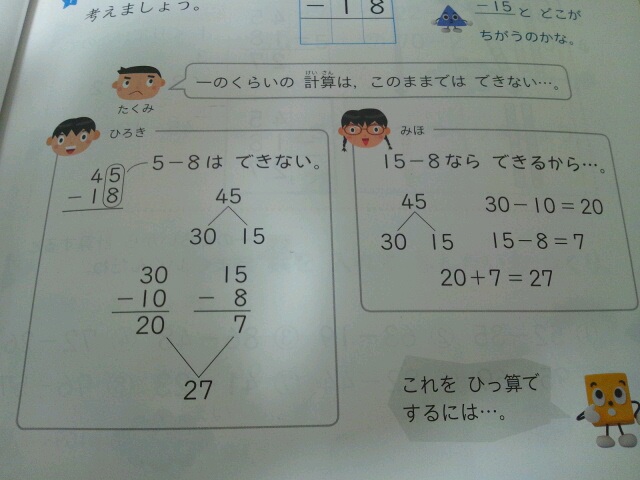 考えましょう。
－18
－15と どこが
ちがうのかな。
一のくらいの 計算は、このままでは できない…。
けい さん
たくみ
ひろき
45
－18
5－8は できない。
45
30 15
30
－10
20
15
－ 8
7
27
みほ
15－8なら できるから…。
45
30 15
30－10＝20
15－8＝7
20＋7＝27
これを ひっ算で
するには…。